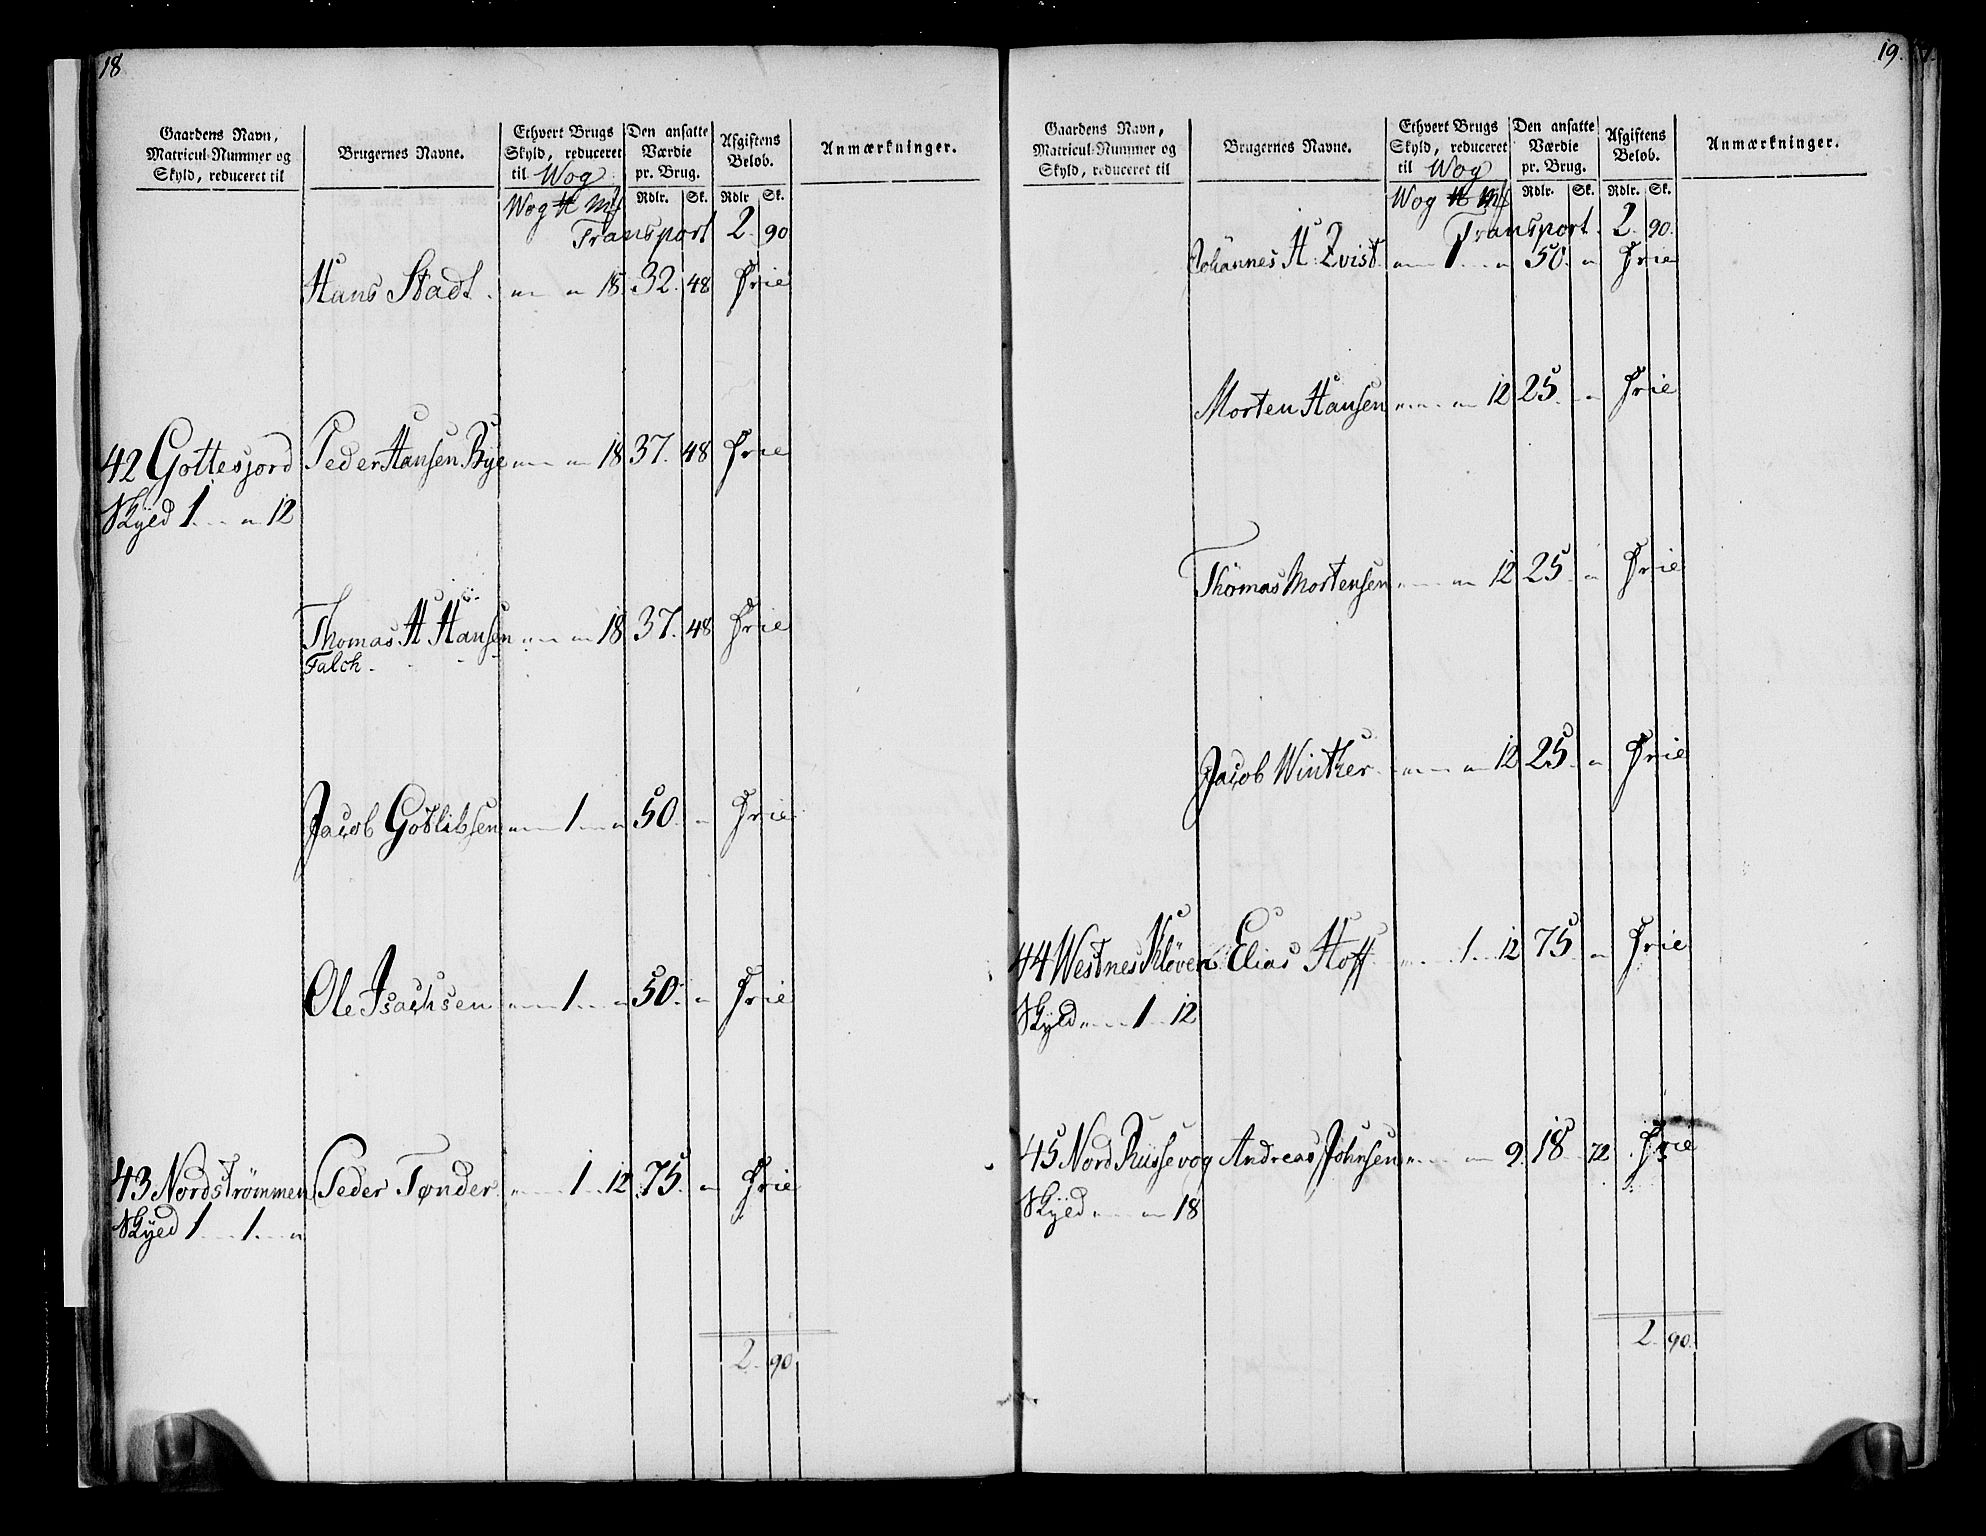 18
Gaardens Navn,
Matricul-Nummer og
Skyld, reduceret til
Brugernes Navne.
Ethvert Brugs
Skyld, reduceret
til Wog
Den ansatte
Værdie
pr. Brug.
Afgiftens
Beløb.
Anmærkninger.
Wog ℔ Mf
Rdlr. Sk. Rdlr Sk.
Transport 2. 90
Hans Stadt. 18 32. 48 Frie
42 Gottesjord Peder Hansen Bye 18 37. 48 Frie
Skyld 1. 12
Thomas H Hansen 18 37. 48 Frie
Falch.
Jacob Gotlibsen 1 50. Frie
Ole Isachsen 1 50. Frie
43 Nordstrømmen Peder Tønder 1 12 75. Frie
Skyld 1 1.
2. 90
19.
Gaardens Navn,
Matricul-Nummer og
Skyld, reduceret til
Brugernes Navne.
Ethvert Brugs
Skyld, reduceret
til Wog
Den ansatte
Værdie
pr. Brug.
Afgiftens
Beløb.
Anmærkninger.
Wog ℔ Mf
Rdlr. Sk. Rdlr. Sk.
Transport. 2. 90.
Johannes H. Qvist 1 50. Frie
Morten Hansen 12 25. Frie
Thomas Mortensen 12 25. Frie
Jacob Winther 12 25. Frie
44 Westnes Kløven Elias Hoff 1. 12 75. Frie
Skyld 1 12
45 Nord Russevog Andreas Johnsen 9. 18 72 Frie
Skyld 18
2. 90.